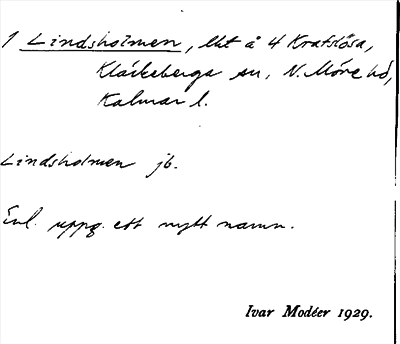 1 Lindsholmen, lht å 4 Krafslösa,
Kläckeberga sn, N. Möre hd,
Kalmar l.
Lindsholmen jb.
Enl. uppg. ett nytt namn.
Ivar Modéer 1929.